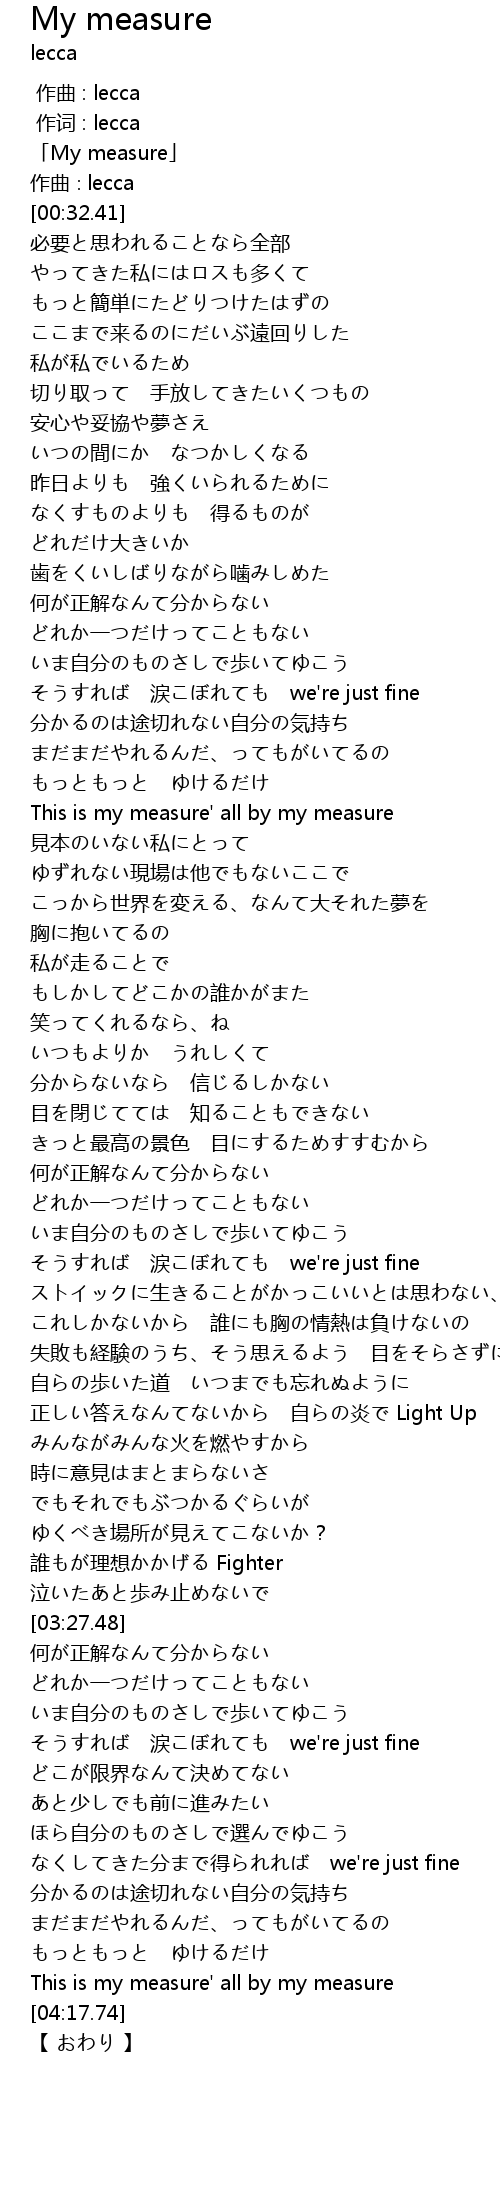 My measure
lecca
作曲 : lecca
作词 : lecca
「My measure」
作曲 : lecca
[00:32.41]
必要と思われることなら全部
やってきた私にはロスも多くて
もっと簡単にたどりつけたはずの
ここまで来るのにだいぶ遠回りした
私が私でいるため
切り取って　手放してきたいくつもの
安心や妥協や夢さえ
いつの間にか　なつかしくなる
昨日よりも　強くいられるために
なくすものよりも　得るものが
どれだけ大きいか
歯をくいしばりながら噛みしめた
何が正解なんて分からない
どれか一つだけってこともない
いま自分のものさしで歩いてゆこう
そうすれば　涙こぼれても　we're just fine
分かるのは途切れない自分の気持ち
まだまだやれるんだ、ってもがいてるの
もっともっと　ゆけるだけ
This is my measure' all by my measure
見本のいない私にとって
ゆずれない現場は他でもないここで
こっから世界を変える、なんて大それた夢を
胸に抱いてるの
私が走ることで
もしかしてどこかの誰かがまた
笑ってくれるなら、ね
いつもよりか　うれしくて
分からないなら　信じるしかない
目を閉じてては　知ることもできない
きっと最高の景色　目にするためすすむから
何が正解なんて分からない
どれか一つだけってこともない
いま自分のものさしで歩いてゆこう
そうすれば　涙こぼれても　we're just fine
ストイックに生きることがかっこいいとは思わない、
これしかないから　誰にも胸の情熱は負けないの
失敗も経験のうち、そう思えるよう　目をそらさずに
自らの歩いた道　いつまでも忘れぬように
正しい答えなんてないから　自らの炎で Light Up
みんながみんな火を燃やすから
時に意見はまとまらないさ
でもそれでもぶつかるぐらいが
ゆくべき場所が見えてこないか？
誰もが理想かかげる Fighter
泣いたあと歩み止めないで
[03:27.48]
何が正解なんて分からない
どれか一つだけってこともない
いま自分のものさしで歩いてゆこう
そうすれば　涙こぼれても　we're just fine
どこが限界なんて決めてない
あと少しでも前に進みたい
ほら自分のものさしで選んでゆこう
なくしてきた分まで得られれば　we're just fine
分かるのは途切れない自分の気持ち
まだまだやれるんだ、ってもがいてるの
もっともっと　ゆけるだけ
This is my measure' all by my measure
[04:17.74]
【 おわり 】